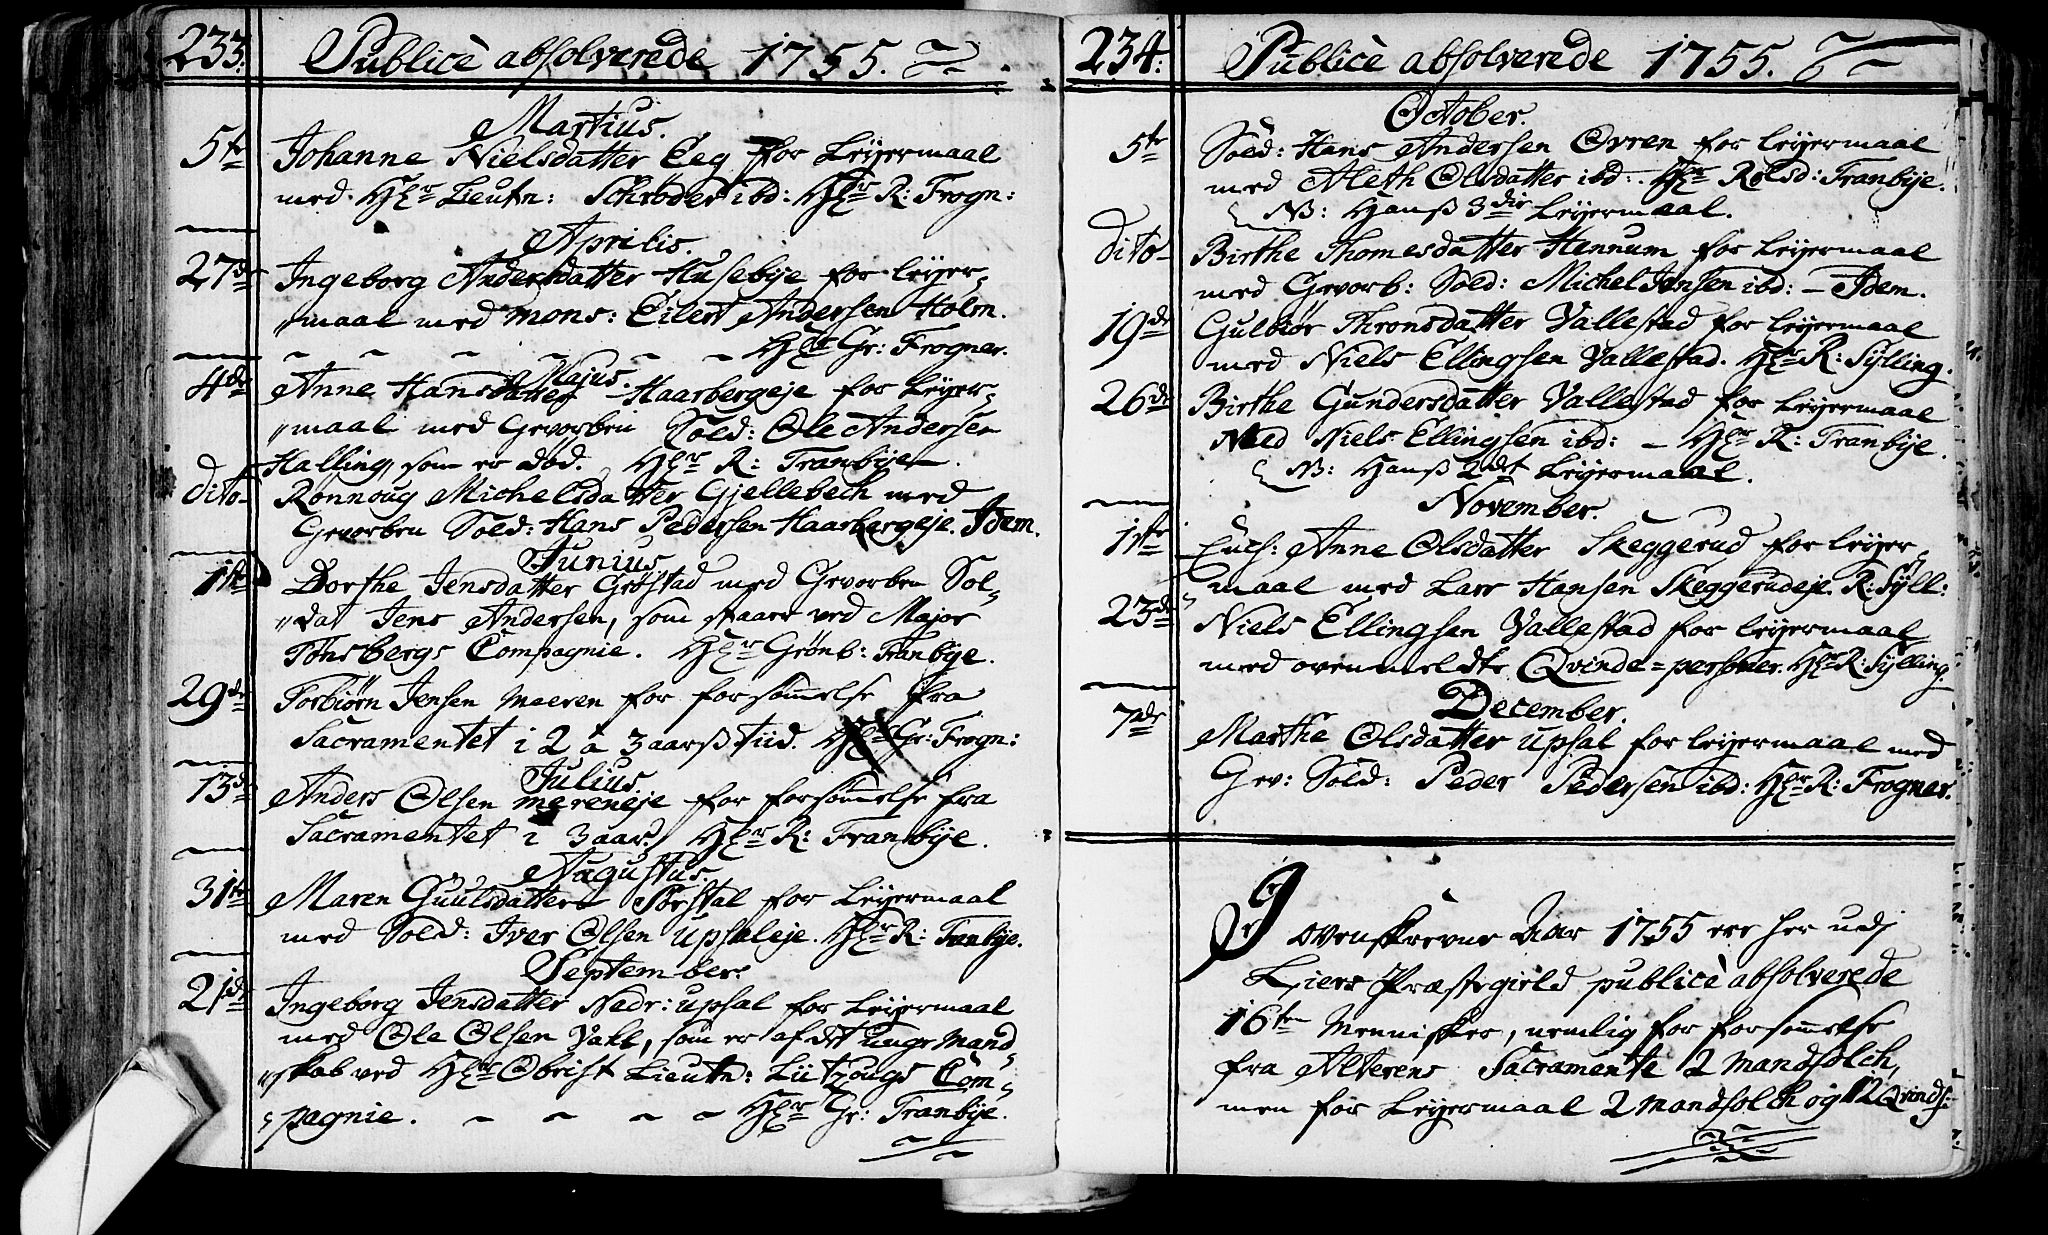 233. Publicè absolverede 1755.
Martius.
5te Johanne Nielsdatter Eeg for Leyermaal
med Hr Lieutn: Schrøder ibd: Hr R: Frogn:
Aprilis.
27de Ingeborg Andersdatter Husebye for leyer-
"maal med Mons: Eilert Andersen Holm.
Hr Gr: Frogner.
Majus.
4de Anne Hansdatter Haarbergeje for Leyer-
"maal med Gevorben Sold: Ole Andersen
Halling, som er död. Hr R: Tranbÿe.
dito Ronnoug Michelsdatter Gjellebech med
Gevorben Sold: Hans Pedersen Haarbergeje. Idem.
Junius
1te Dorthe Jensdatter Gröstad med Gevorben Sol-
"dat Jens Andersen, som staaer ved Major
Tönsbergs Compagnie. Hr Grönb: Tranbÿe.
29de Torbiörn Jensen Meeren for forsömelse fra
Sacramentet i 2 à 3 aarß tiid. Hr Gr: Frogn:
Julius.
13de Anders Olsen mereneje for forsömelse fra
Sacramentet i 3 aar. Hr R: Tranbÿe.
Augustus.
31te Maren Guulsdatter Sörstal for Leÿermaal
med Sold: Iver Olsen Upsaleje. Hr R: Tranbÿe.
September
21de Ingeborg Jensdatter Nedr: upsal for Leÿermaal
med Ole Olsen, som er af det unge Mand-
"skab ved Hr Obrist Lieutn: Lützougs Com-
"pagnie. Hr Gr: Tranbÿe.
234. Publicè absolverede 1755.
October.
5te Sold: Hans Andersen Ovren for leÿermaal
med Aleth Olsdatter ibd: Hr Rolsd: Tranbÿe.
NB: Hanß 3die Leÿermaal.
dito Birthe Thomesdatter Hennum for leÿermaal
med Gevorb: Sold: Michel Jensen ibd: – Idem.
19de Gulbiör Thronsdatter Vallestad for leÿermaal
med Niels Ellingsen Vallestad. Hr R: Sÿlling.
26de Birthe Gundersdatter Vallestad for leÿermaal
Med Niels Ellingsen ibd: – Hr R: Tranbÿe.
NB: Hanß 2det Leÿermaal.
November.
11te Anne Olsdatter Skeggerud for leÿer-
"maal med Lars Hansen Skeggerudeje. R: Sÿll:
23de Niels Ellingsen Vallestad for leÿermaal
med ovenmeldte Qvinde=personer. Hr R: Sÿlling.
December.
7de Marthe Olsdatter upsal for leÿermaal med
Gev: Sold: Peder Pedersen ibd: Hr R: Frogner.
I ovenskrevne Aar 1755 ere her udj
Liers Præstegield publicè absolverede
16ten Mennisker, nemlig for forsömelse
fra Alterens Sacramente 2 Mandfolch,
men for Leÿermaal 2 Mandfolch og 12 Qvindf: